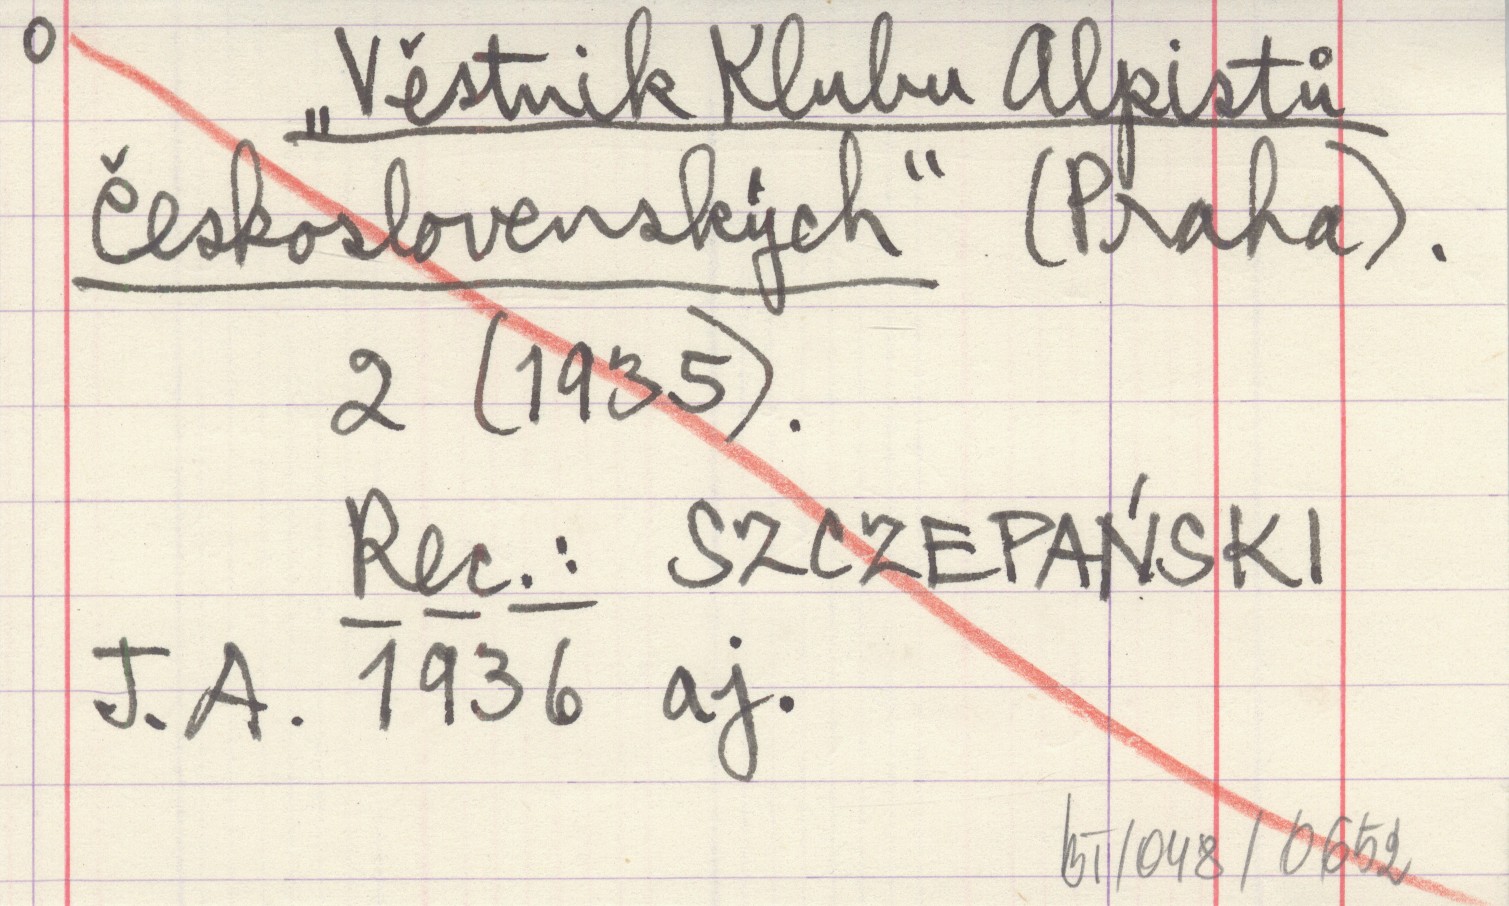 0
„Věstnik Klubu Alpistů
Československých“ (Praha).
2 (1935).
Rec.: SZCZEPAŃSKI
J.A. 1936 aj.
BT/048/0652